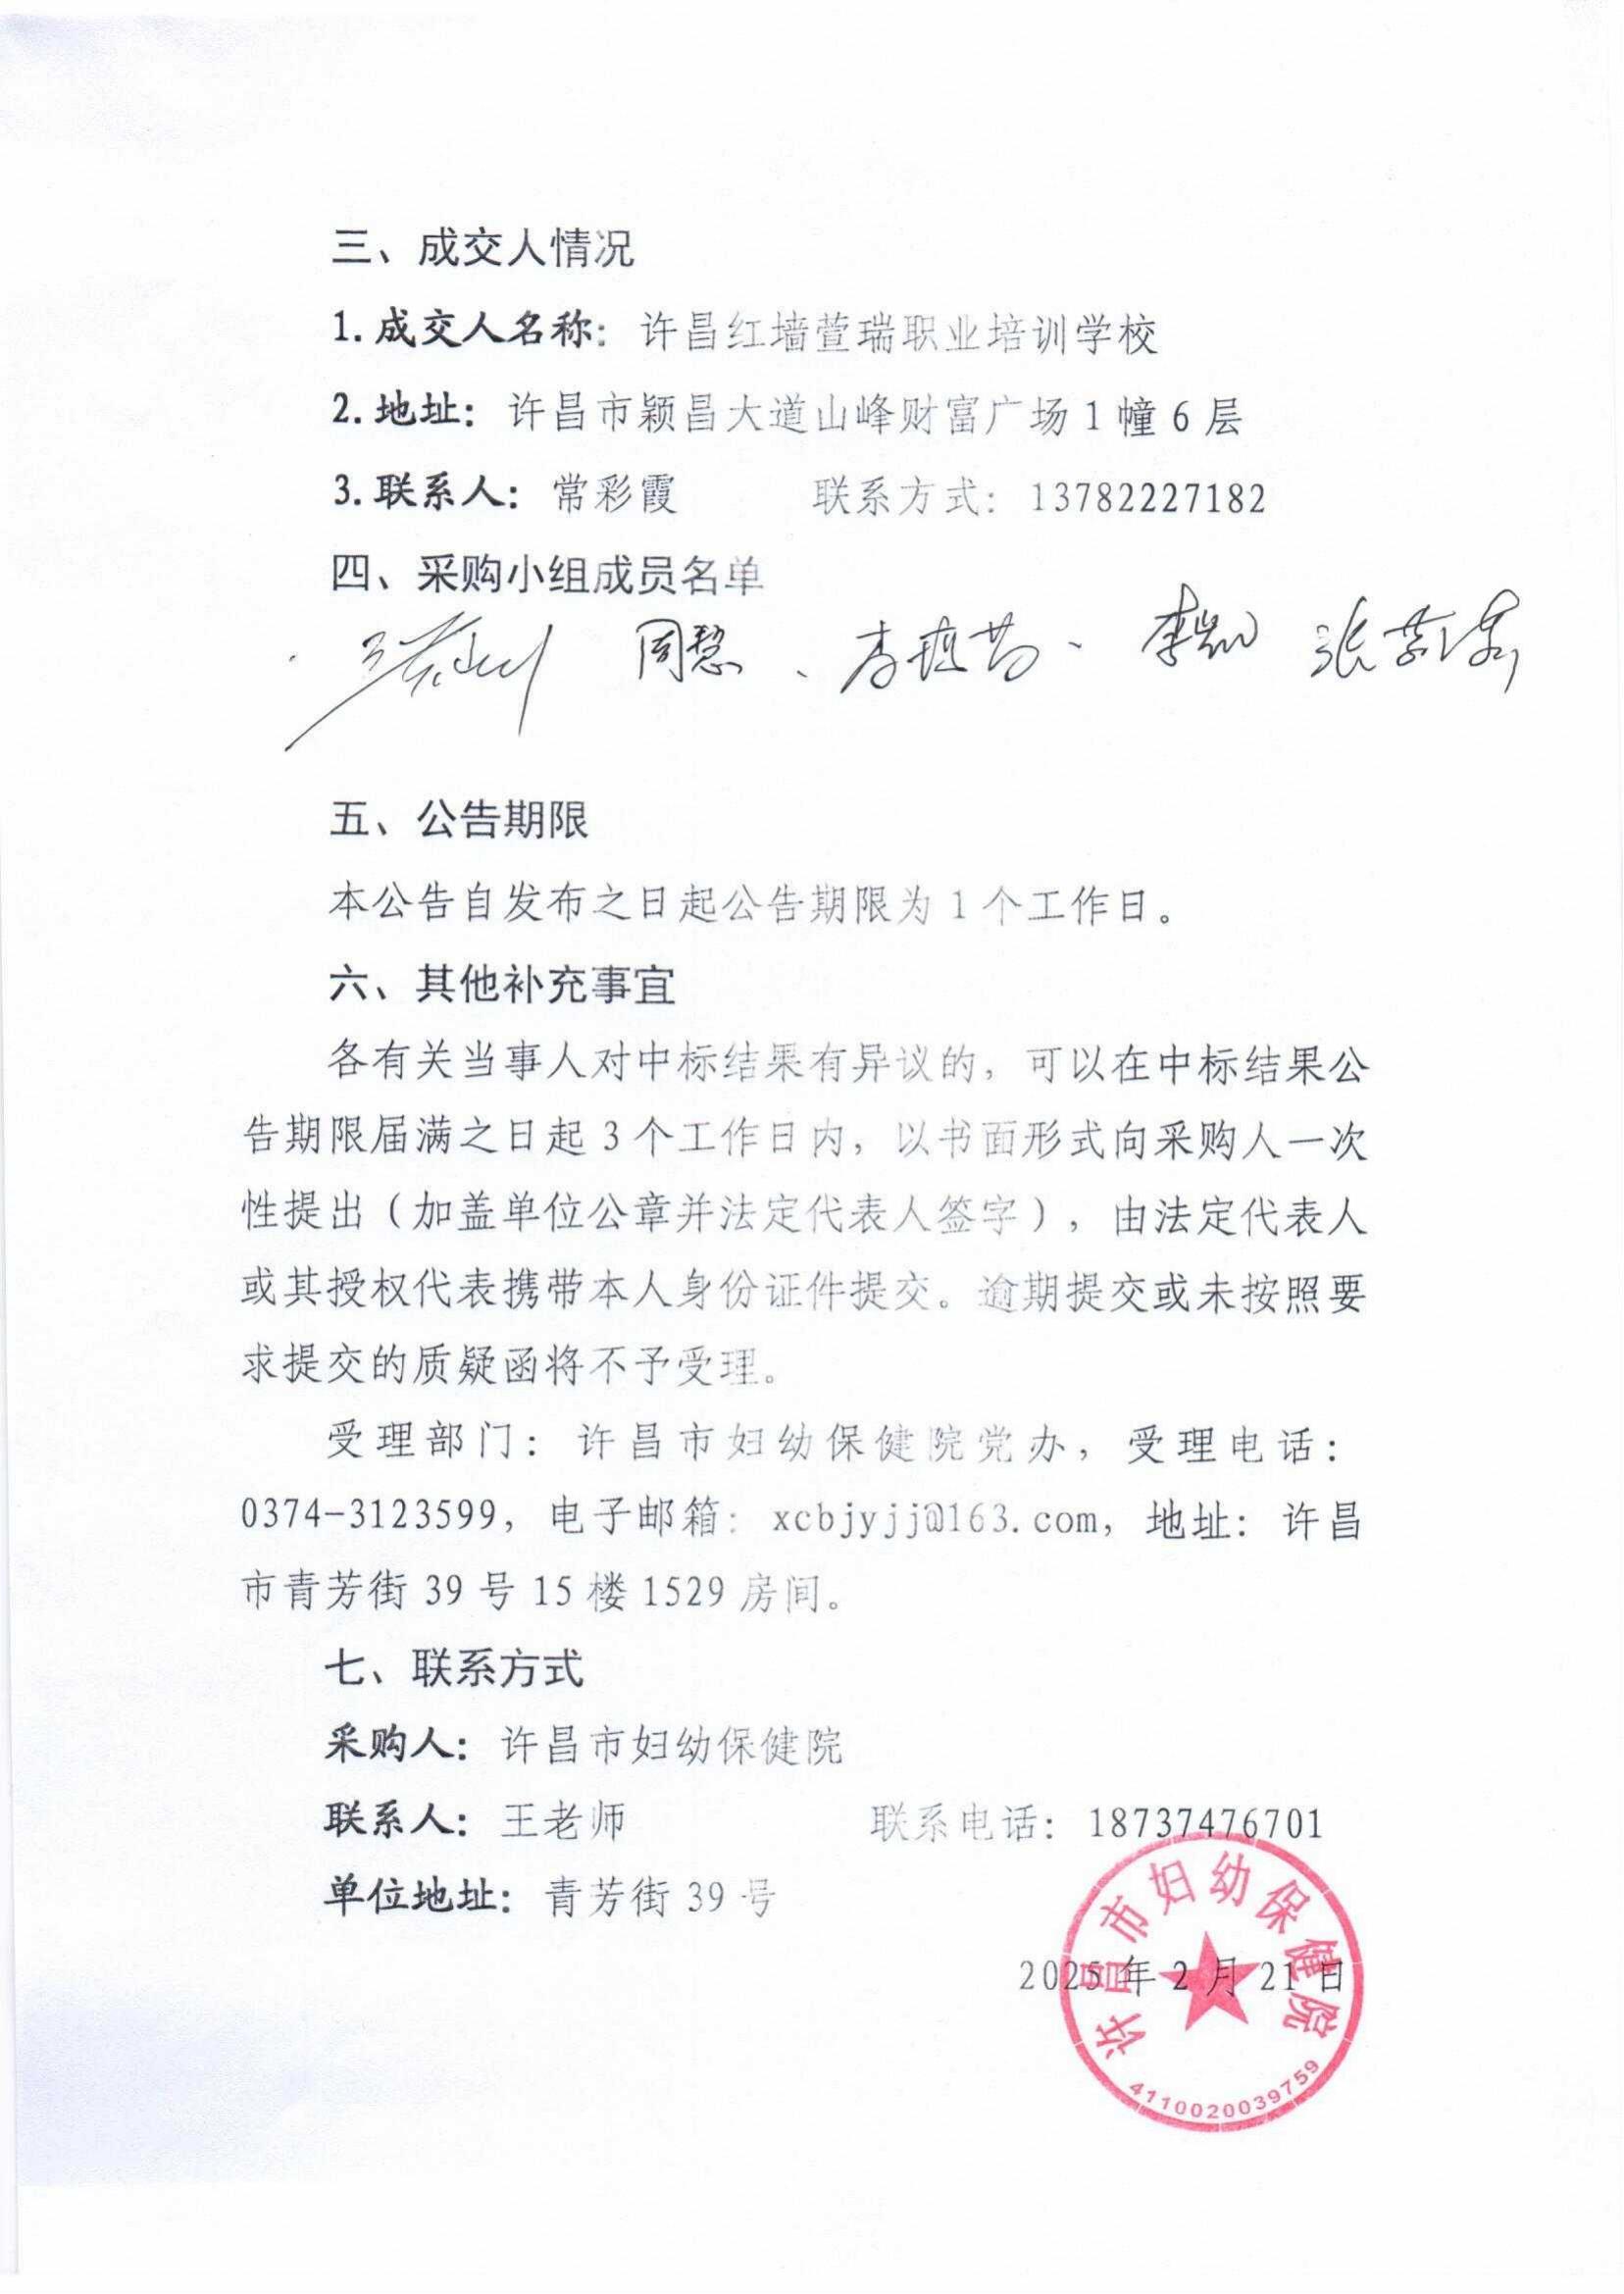 三、成交人情况
1.成交人名称：许昌红墙萱瑞职业培训学校
2.地址：许昌市颖昌大道山峰财富广场1幢6层
3.联系人：常彩霞 联系方式：13782227182
四、采购小组成员名单
周慧、李 李凯 张
五、公告期限
本公告自发布之日起公告期限为1个工作日。
六、其他补充事宜
各有关当事人对中标结果有异议的，可以在中标结果公
告期限届满之日起3个工作日内，以书面形式向采购人一次
性提出（加盖单位公章并法定代表人签字），由法定代表人
或其授权代表携带本人身份证件提交。逾期提交或未按照要
求提交的质疑函将不予受理。
受理部门：许昌市妇幼保健院党办，受理电话：
0374-3123599，电子邮箱：xcbjyjj@163.com，地址：许昌
市青芳街39号15楼1529房间。
七、联系方式
采购人：许昌市妇幼保健院
联系人：王老师 联系电话：18737476701
单位地址：青芳街39号
2025年2月21日
许昌市妇幼保健院
4110020039759